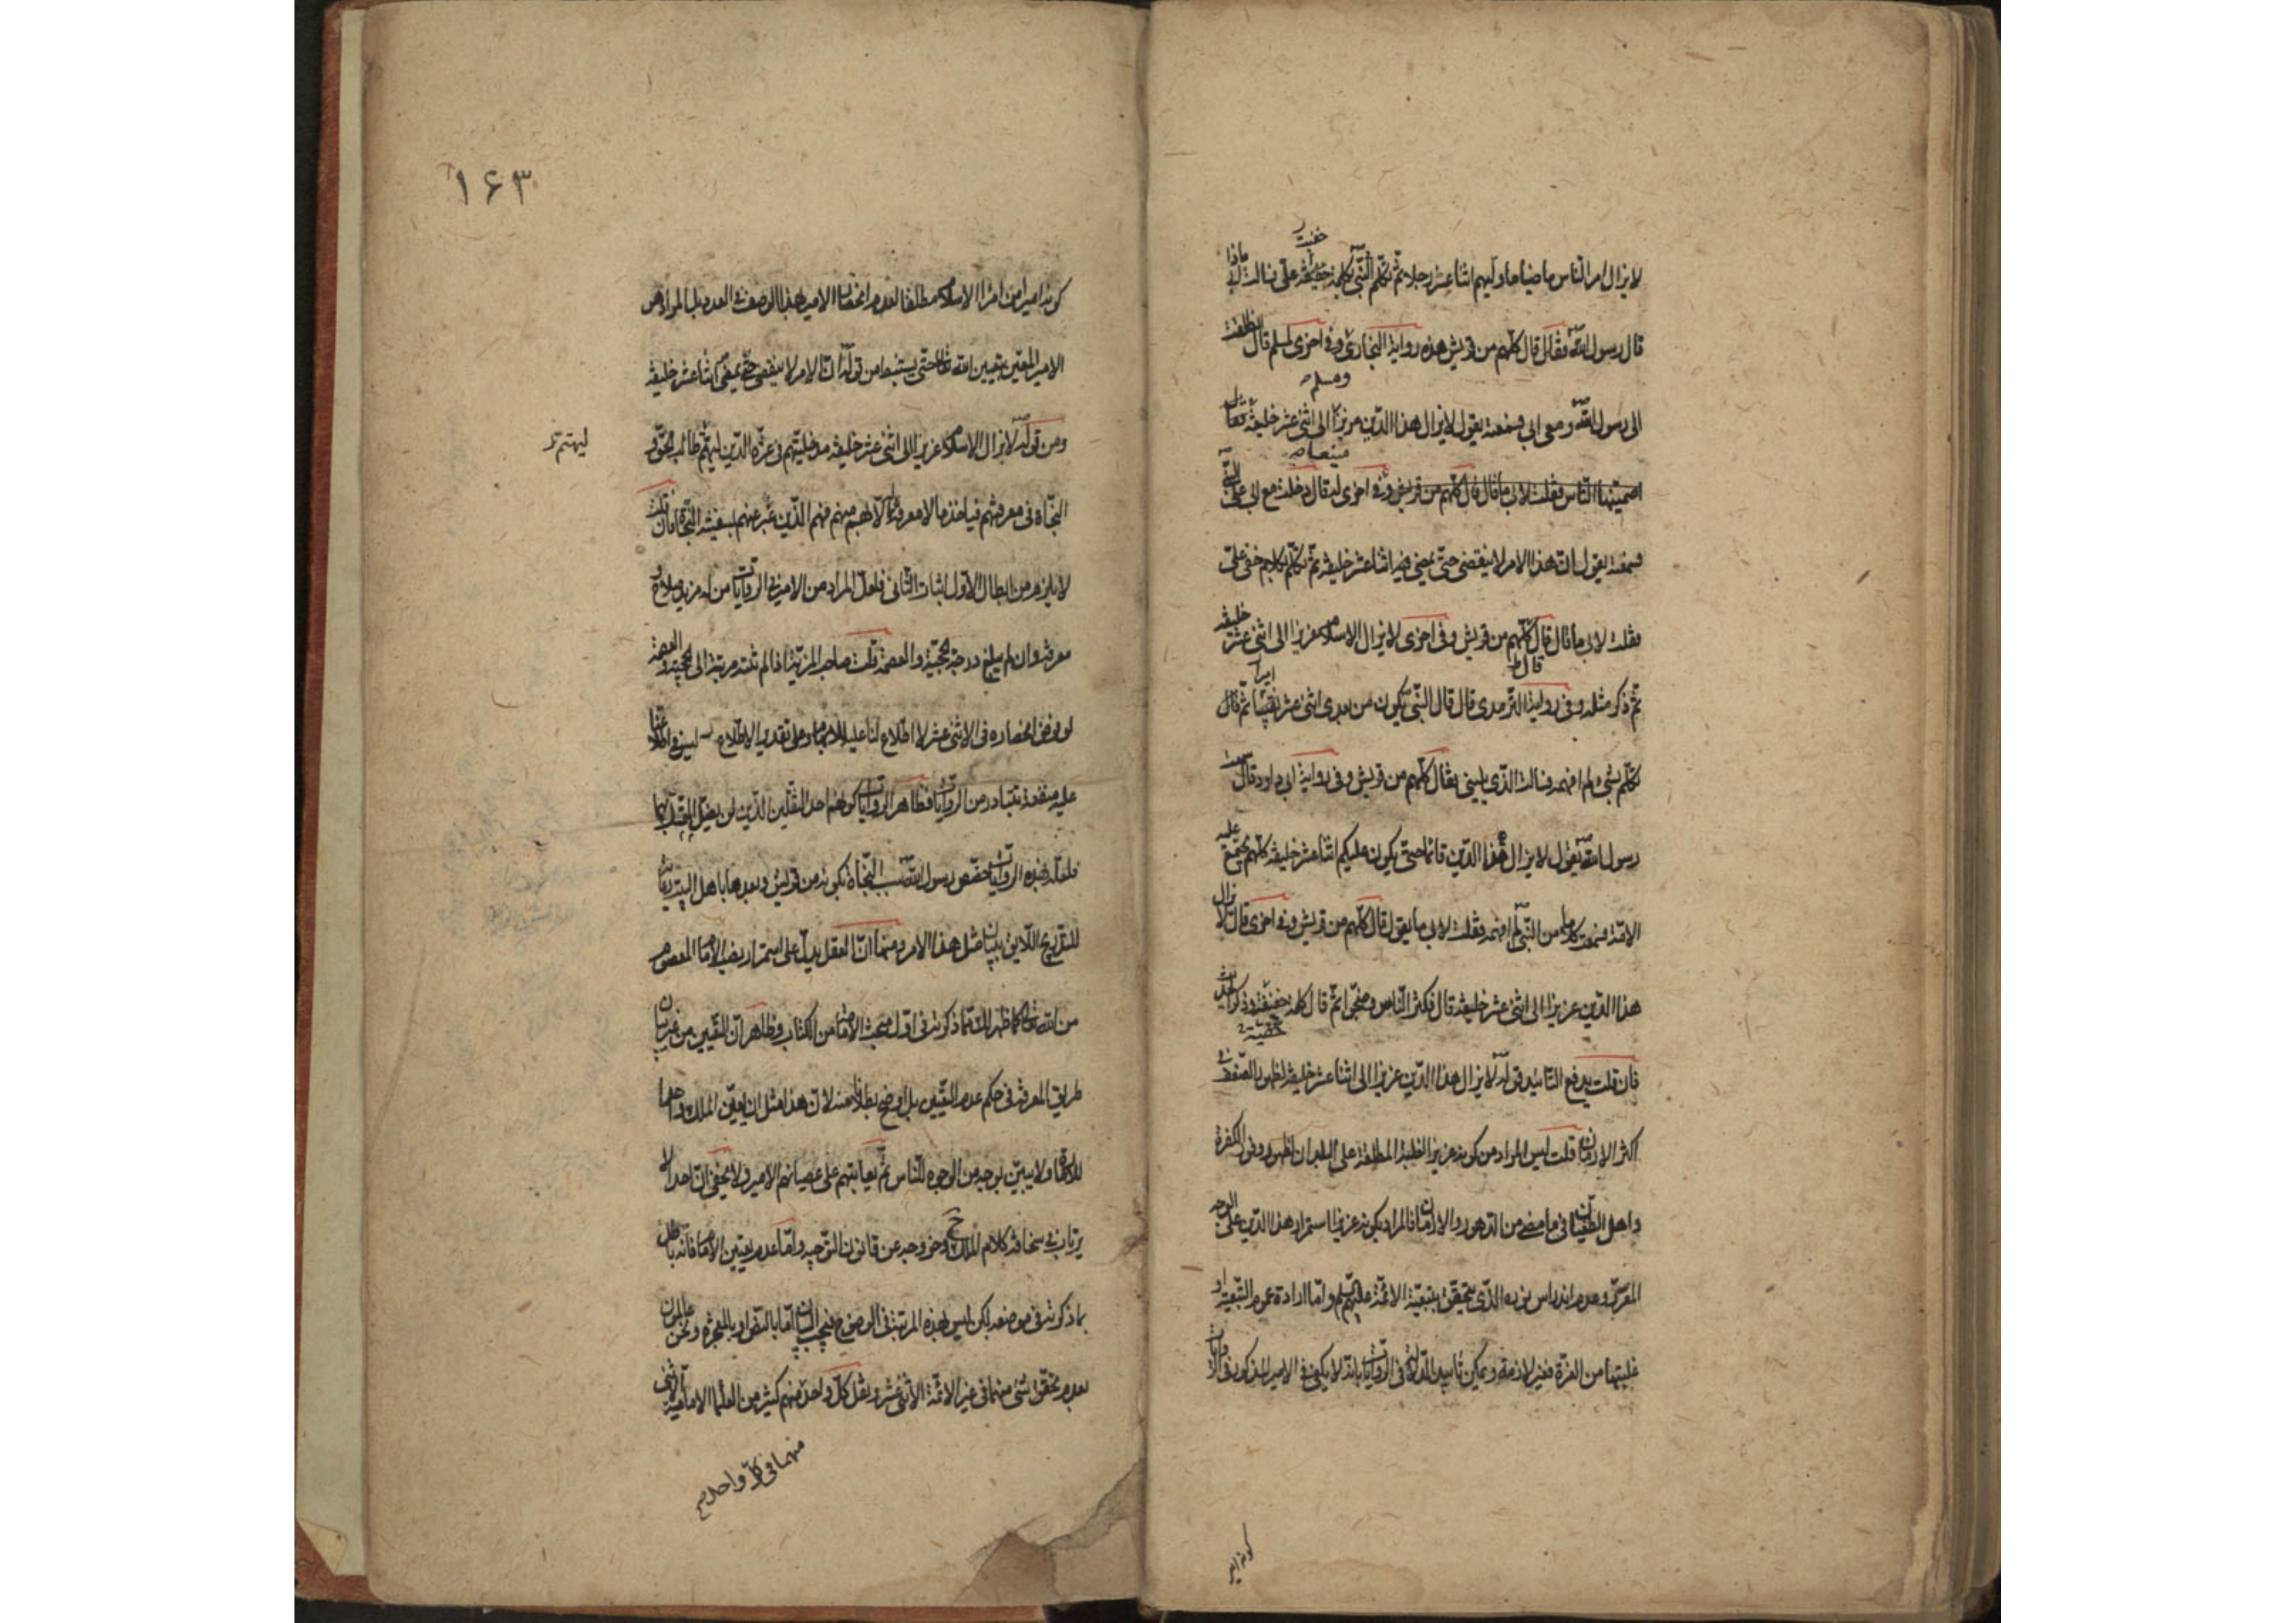 خفيت
لا يزال امر الناس ماضيا ما وليهم اثنا عشر رجلا ثم تكلم النبي بكلمة خفيفة علي فسالت ابي ماذا
قال رسول الله فقال قال كلهم من قريش هذه رواية البخاري وفي اخرى لمسلم قال انطلقت
ومسلم
الى رسول الله ومعي ابي فسمعته يقول لا يزال هذا الدين عزيزا الى اثنى عشر خليفة فقال
منيعا
اصمنيها الناس فقلت لابي ما قال قال كلهم من قريش وفي اخرى له قال دخلت مع ابي على النبي
فسمعته يقول ان هذا الامر لا ينقضي حتى يمضي فيه اثنا عشر خليفة ثم تكلم بكلام خفي علي
فقلت لابي ما قال قال كلهم من قريش وفي اخرى لا يزال الاسلام عزيزا الى اثنى عشر خليفة
قال
اميرا
ثم ذكر مثله وفي رواية الترمذي قال قال النبي يكون من بعدي اثنى عشر ثم قال
تكلم بشي لم افهمه فسالت الذي يليني فقال كلهم من قريش وفي رواية ابي داود قال سمعت
رسول الله يقول لا يزال هذا الدين قائما حتى يكون عليكم اثنا عشر خليفة كلهم تجتمع عليه
الامة فسمعت كلاما من النبي لم افهمه فقلت لابي ما يقول قال كلهم من قريش وفي اخرى قال لا يزال
هذا الدين عزيزا الى اثنى عشر خليفة قال فكبر الناس وضجوا ثم قال كلمة خفيفة وذكر الحديث
خفية
فان قلت يدفع التاييد قوله لا يزال هذا الدين عزيزا الى اثنا عشر خليفة لظهور الضعف في
اكثر الازمان قلت ليس المراد من كونه عزيزا الغلبة المطلقة على البلدان لظهور وفور الكفرة
واهل الطغيان في ما مضى من الدهور والازمان فالمراد بكونه عزيزا استمرار هذا الدين على الوجه
المقرر وعدم اندراس نوره الذي يتحقق بتبعية الائمة عليهم السلم واما ارادة عموم التبعية او
غلبتها من العزة فغير لازمة ويمكن تاييد الدلالة في الروايات بانه لا يكفي في الامير المذكور في الروايات
كونه امير
۱۶۳
كونه اميرا من امراء الاسلام مطلقا لعدم انحصار الامير بهذا الوصف في العدد بل المراد هو
الامير المعين بتعيين الله تعالى حتى يستنبط من قوله ان الامر لا ينقضي حتى يمضي اثنا عشر خليفة
ومن قوله لا يزال الاسلام عزيزا الى اثنى عشر خليفة مدخليتهم في عزة الدين ليهتم طالب الحق و
ليهتم
النجاة في معرفتهم فياخذ معالم الدين عنهم بسفينة النجاة فان قلت
لا يلزم من ابطال الاول اثبات الثاني فلعل المراد من الامير في الروايات من له مزيد صلاح و
معرفة وان لم يبلغ درجة الحجية والعصمة قلت صاحب المزية اذا لم تنته مرتبته الى الحجية والعصمة
لو فرض انحصاره في الاثنى عشر لا اطلاع لنا عليه وعلى تقدير الاطلاع ليس في اطلاعنا
عليه منفعة تتبادر من الروايات فظاهر الروايات كونهم احد الثقلين الذين لن يضل المتمسك بهما
فلعله بهذه الروايات خصص رسول الله سبب النجاة بكونه من قريش وبعدها باهل البيت رعاية
للتدريج اللايق ببيان مثل هذا الامر ومنها ان العقل يدل على استمرار نصب الامام المعصوم
من الله تعالى كما ظهر لك مما ذكرته في اول مبحث الامامة من الكتاب وظاهر ان التعيين من غير بيان
طريق المعرفة في حكم عدم التعيين بل اوضح بطلانا منه لان هذا مثل ان يعين الملك واحدا
للحكومة ولا يبين بوجه من الوجوه للناس ثم يعاتبهم على عصيانهم الامير ولا يخفى ان احدا لا
يرتاب في سخافة كلام الملك ح وخروجه عن قانون التوجيه واما عدم تعيين الامام فانه باطل
بما ذكرته في موضعه لكن ليس بهذه المرتبة في الوضوح فيجب البيان اما بالنص او بالمعجزة ونحن عالمون
بعدم تحقق شي منهما في غير الائمة الاثنى عشر ونقل كل واحد منهم كثير من العلماء الامامية
منهما في كل واحد